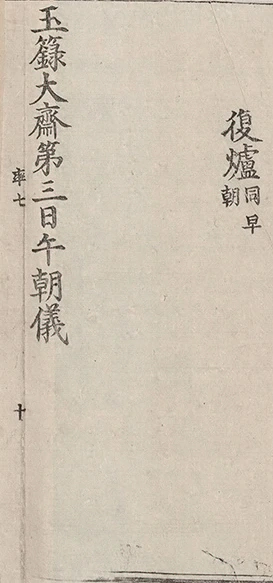 復爐同早朝
玉籙大齋第三日午朝儀
率七
十